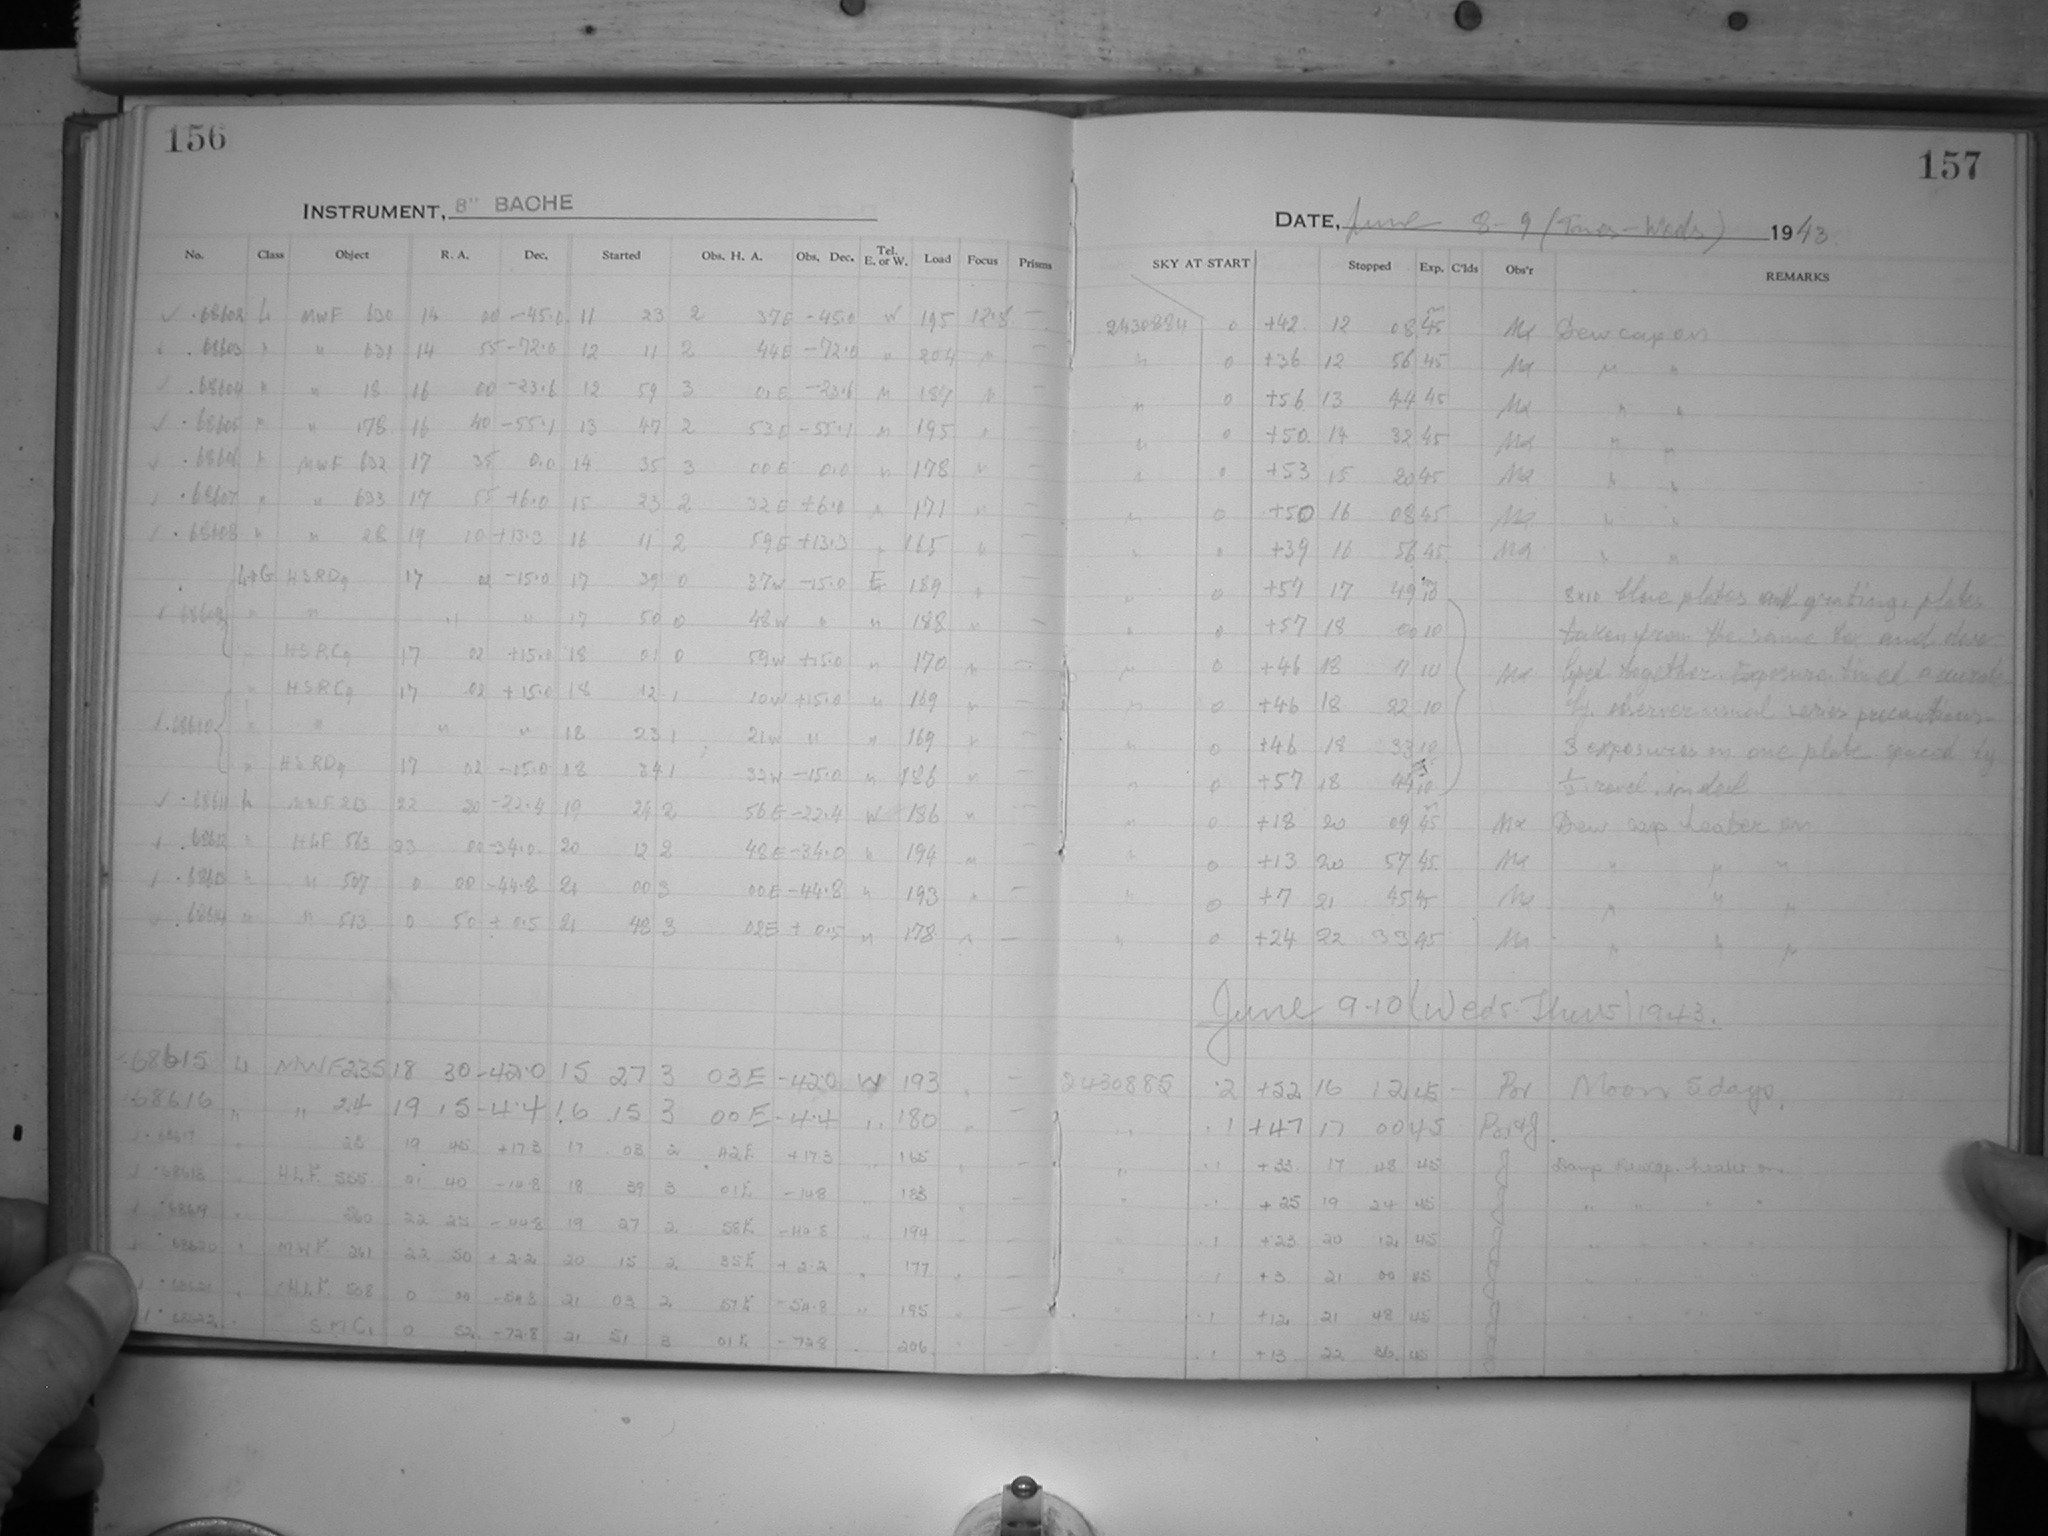 156
157
INSTRUMENT, 8" BACHE
DATE, June 8-9 (Tues-Weds) 1943.
No. Class Object R. A. Dec. Started Obs. H. A. Obs. Dec. Tel. E. or W. Load Focus Prisms SKY AT START Stopped Exp. C'lds Obs'r REMARKS
68602 L MWF 630 14 00 -45.0 11 23 2 37E -45.0 W 195 12.8 — 2430884 0 +42 12 08 45 Ma Dew cap on
68603 " " 631 14 55 -72.0 12 11 2 44E -72.0 " 204 " — " 0 +36 12 56 45 Ma " "
68604 " " 18 16 00 -23.6 12 59 3 01E -23.6 " 187 " — " 0 +56 13 44 45 Ma " "
68605 " " 178 16 40 -55.1 13 47 2 53E -55.1 " 195 " — " 0 +50 14 32 45 Ma " "
68606 " MWF 632 17 35 0.0 14 35 3 00E 0.0 " 178 " — " 0 +53 15 20 45 Ma " "
68607 " " 633 17 55 +6.0 15 23 2 32E +6.0 " 171 " — " 0 +50 16 08 45 Ma " "
68608 " " 28 19 10 +13.3 16 11 2 59E +13.3 " 165 " — " 0 +39 16 56 45 Ma " "
HSRD9 17 02 -15.0 17 39 0 37W -15.0 E 189 " " 0 +57 17 49 10 8x10 blue plates grating, plates
68609 " " " " 17 50 0 48W " " 188 " " 0 +57 18 00 10 taken from the same box and deve
HSRC9 17 02 +15.0 18 01 0 59W +15.0 " 170 " — " 0 +46 18 11 10 Ma loped together. Exposure timed accurate
" HSRC9 17 02 +15.0 18 12 1 10W +15.0 " 169 " " 0 +46 18 22 10 ly. observer usual series precautions
68610 " " " " 18 23 1 21W " " 169 " " 0 +46 18 33 10 3 exposures on one plate spaced by
" HSRD9 17 02 -15.0 18 34 1 32W -15.0 " 186 " " 0 +57 18 44 10 1/2 in decl
68611 L MWF 213 22 20 -22.4 19 24 2 56E -22.4 W 186 " — " 0 +18 20 09 45 Ma Dew cap heater on
68612 " HLF 563 23 00 -34.0 20 12 2 48E -34.0 " 194 " — " 0 +13 20 57 45 Ma " " "
" " 507 0 00 -44.8 21 00 3 00E -44.8 " 193 " — " 0 +7 21 45 45 Ma " " "
68614 " " 513 0 50 +0.5 21 48 3 02E +0.5 " 178 " — " 0 +24 22 33 45 Ma " " "
June 9-10 (Weds-Thurs) 1943.
68615 L MWF 235 18 30 -42.0 15 27 3 03E -42.0 W 193 " — 2430885 .2 +52 16 12 45 — Por Moon 5 days.
68616 " " 24 19 15 -4.4 16 15 3 00E -4.4 " 180 " — " .1 +47 17 00 45 Por+J
68617 " 28 19 45 +17.3 17 03 2 42E +17.3 " 165 — " .1 +33 17 48 45 J Damp Dewcap heater on
68618 " H.L.F. 555 01 40 -14.8 18 39 3 01E -14.8 " 183 " — " .1 +25 19 24 45 " " " "
68619 " 560 22 25 -44.8 19 27 2 58E -44.8 " 194 " .1 +23 20 12 45 " " " "
68620 " MWF 261 22 50 +2.2 20 15 2 35E +2.2 " 177 " — .1 +3 21 00 45
68621 " H.L.F. 508 0 00 -54.8 21 03 2 57E -54.8 " 195 " — " .1 +12 21 48 45
68622 S.M.C. 0 52 -72.8 21 51 3 01E -72.8 206 .1 +13 22 36 45